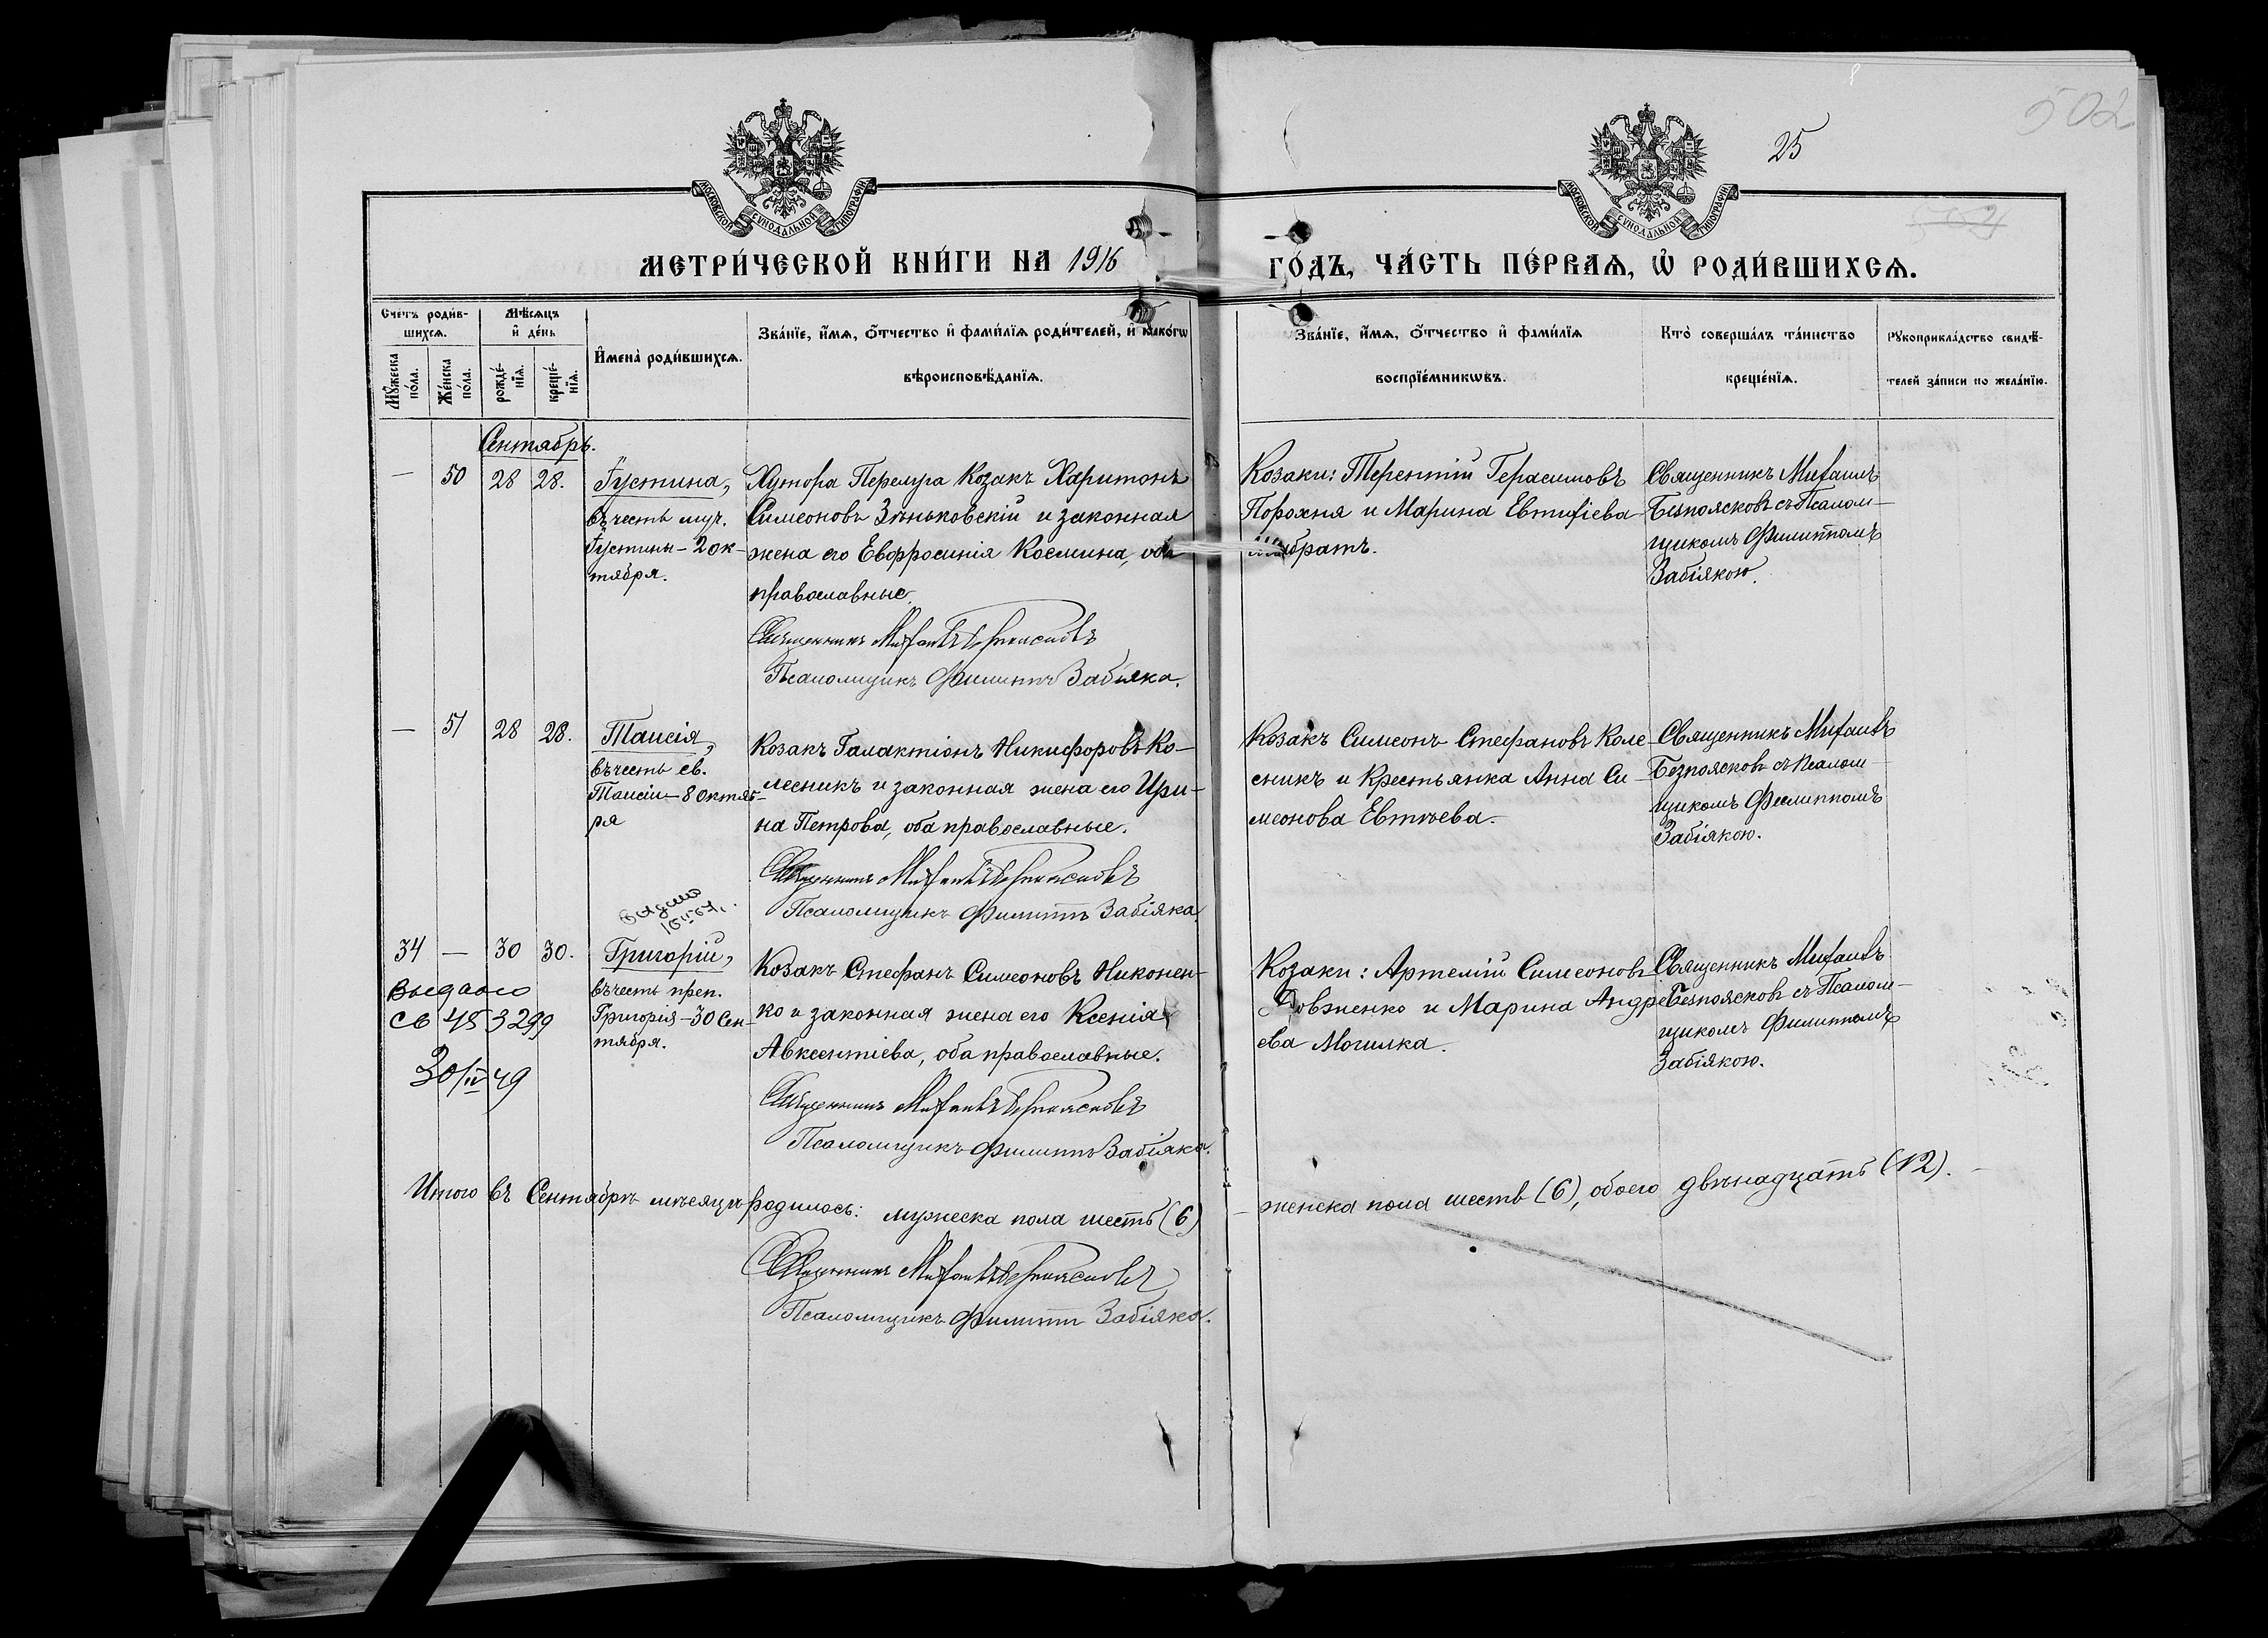 502
25
МОСКОВСКОЙ СУНОДАЛЬНОЙ ТИПОГРАФІИ
МОСКОВСКОЙ СУНОДАЛЬНОЙ ТИПОГРАФІИ
МЕТРИ́ЧЕСКОЙ КНИ́ГИ НА 1916 ГО́ДЪ, ЧА́СТЬ ПЕ́РВАѦ, Ѽ РОДИ́ВШИХСѦ.
Сче́тъ роди́в-
шихсѧ.
Мѣ́сѧцъ
и҆ де́нь
Мꙋ́жеска по́ла.
Же́нска по́ла.
рожде́-нїѧ.
креще́-нїѧ.
И҆мена̀ роди́вшихсѧ.
Зва́нїе, и҆́мѧ, ѻ҆́тчество и҆ фами́лїѧ роди́телей, и҆ како́гѡ
вѣроисповѣ́данїѧ.
Зва́нїе, и҆́мѧ, ѻ҆́тчество и҆ фами́лїѧ
воспрїе́мникѡвъ.
Кто̀ соверша́лъ та́инство
креще́нїѧ.
Рꙋкоприкла́дство свидѣ́-
телей за́писи по жела́нїю.
Сентябрь.
— 50 28 28.
Іустина,
въ честь муч.
Іустины – 2 ок-
тября.
Хутора Перелуга Козакъ Харитонъ
Симеоновъ Зѣньковскій и законная
жена его Евфросинія Космина, оба
православные.
Священникъ Михаилъ Безпоясковъ
Псаломщикъ Филиппъ Забіяка.
Козаки: Терентій Герасимовъ
Порохня и Марина Евтихіева
братъ.
Священникъ Михаилъ
Безпоясковъ съ Псалом-
щикомъ Филиппомъ
Забіякою.
— 51 28 28.
Таисія,
въ честь св.
Таисіи – 8 октяб-
ря
Козакъ Галактіонъ Никифоровъ Ко-
лесникъ и законная жена его Ири-
на Петрова, оба православные.
Священникъ Михаилъ Безпоясковъ
Псаломщикъ Филиппъ Забіяка.
Козакъ Симеонъ Стефановъ Коле-
сникъ и Крестьянка Анна Си-
меонова Евтѣева.
Священникъ Михаилъ
Безпоясковъ съ Псалом
щикомъ Филиппомъ
Забіякою.
Выдано
34 — 30 30.
Выдано
св 45 3299
30/IV 49
Григорій,
въ честь преп.
Григорія – 30 Сен-
тября.
Козакъ Стефанъ Симеоновъ Никонен-
ко и законная жена его Ксенія
Авксентіева, оба православные.
Священникъ Михаилъ Безпоясковъ
Псаломщикъ Филиппъ Забіяка.
Козаки: Артемій Симеоновъ
Довженко и Марина Андре-
ева Могилка.
Священникъ Михаилъ
Безпоясковъ съ Псалом-
щикомъ Филиппомъ
Забіякою.
Итого въ Сентябрѣ мѣсяцѣ родилось: мужеска пола шесть (6)
женска пола шесть (6), обоего двѣнадцать (12).
Священникъ Михаилъ Безпоясковъ
Псаломщикъ Филиппъ Забіяка.